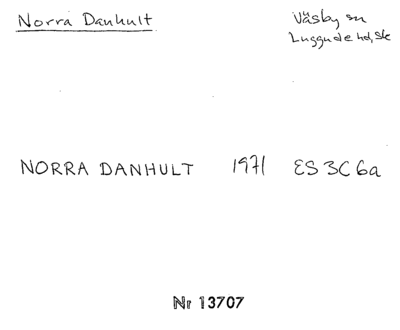 Norra Danhult
Väsby sn
Luggude hd, Sk
NORRA DANHULT 1971 ES 3C6a
Nr 13707